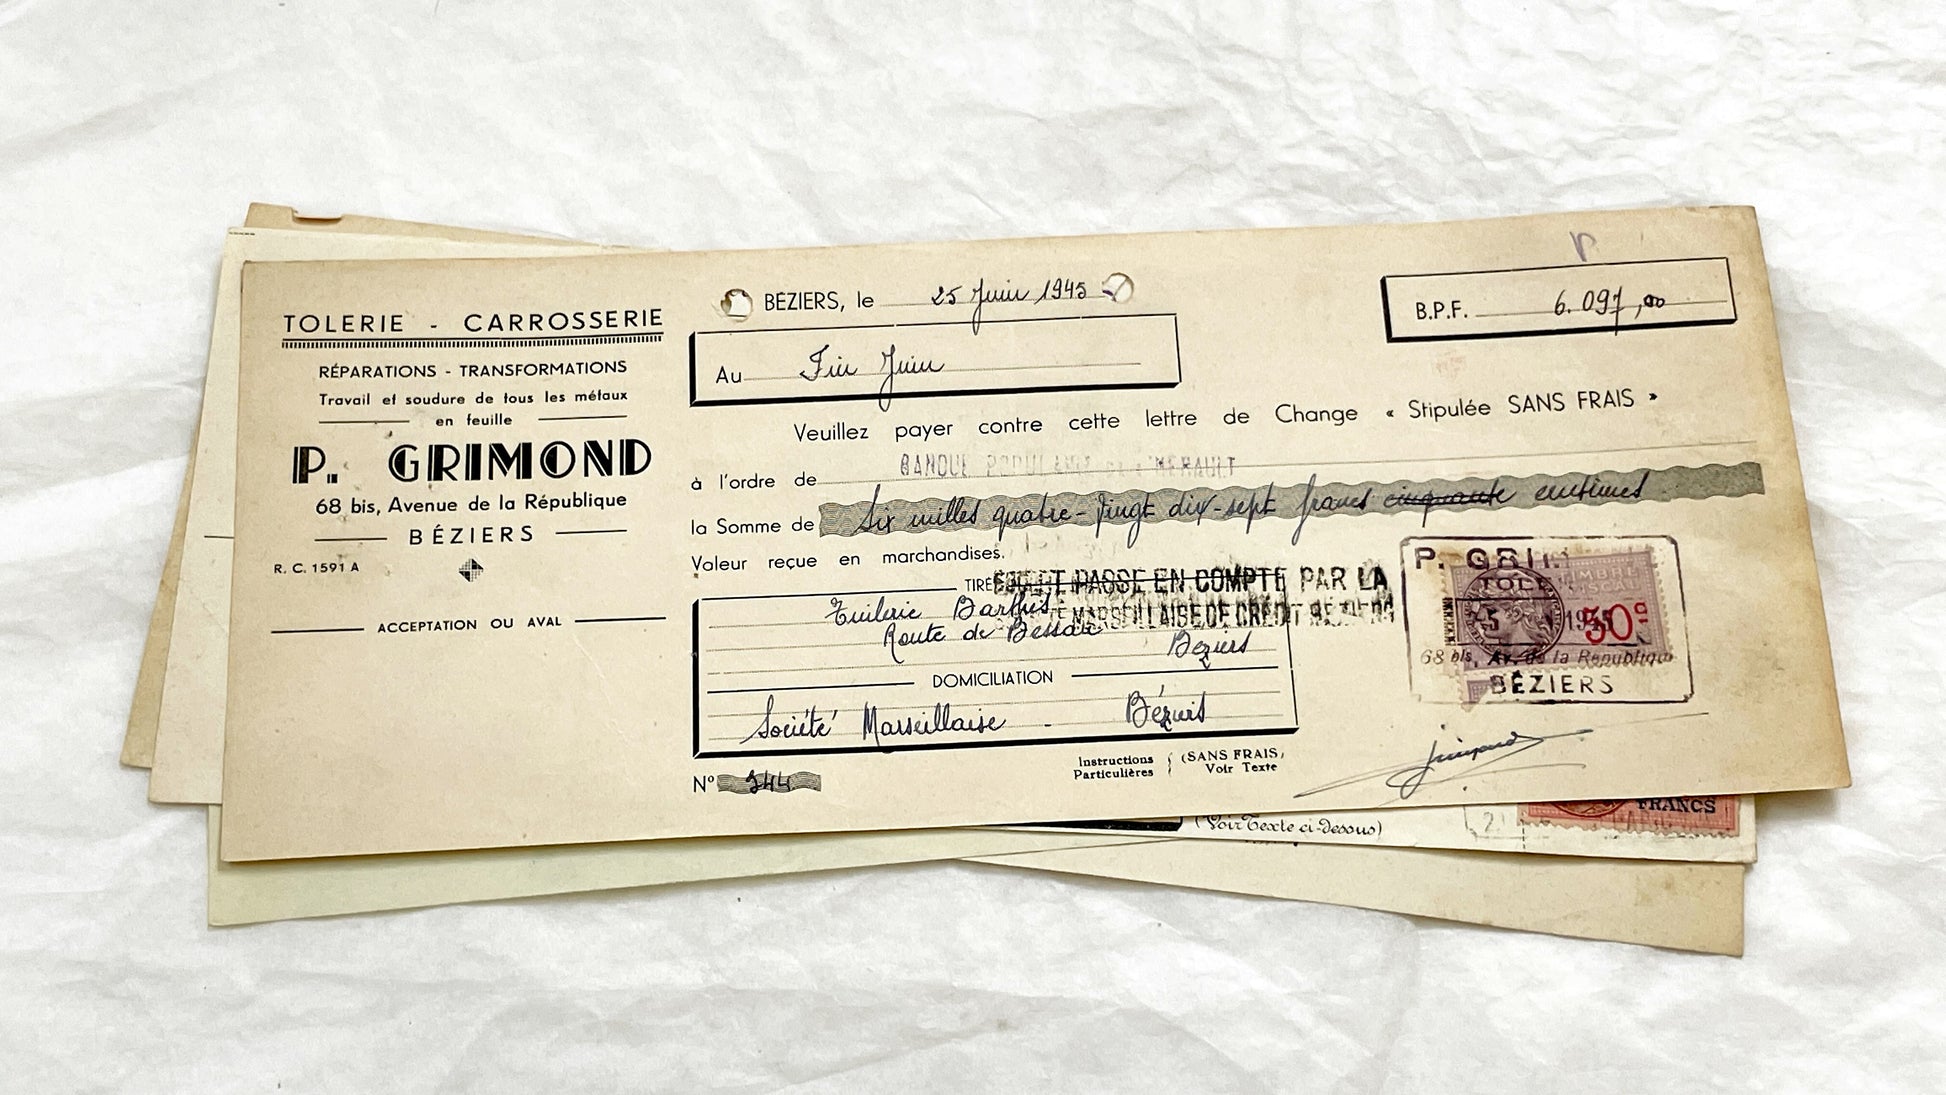 TOLERIE - CARROSSERIE
RÉPARATIONS - TRANSFORMATIONS
Travail et soudure de tous les métaux
en feuille
P. GRIMOND
68 bis, Avenue de la République
BÉZIERS
R. C. 1591 A
ACCEPTATION OU AVAL
BÉZIERS, le 25 Juin 1945
Au Fin Juin
B.P.F. 6.097,00
Veuillez payer contre cette lettre de Change « Stipulée SANS FRAIS »
à l'ordre de BANQUE POPULAIRE DE L'HERAULT
la Somme de Six milles quatre-vingt dix-sept francs cinquante centimes
Valeur reçue en marchandises.
TIRÉ
PASSE EN COMPTE PAR LA
MARSEILLAISE DE CRÉDIT BÉZIERS
Tuilerie Barthès
Route de Bessan
Béziers
DOMICILIATION
Société Marseillaise - Béziers
N° 244
Instructions Particulières (SANS FRAIS, Voir Texte
P. GRIM
TOLE
TIMBRE FISCAL
50c
68 bis, Av. de la République
BÉZIERS
(Voir Texte ci-dessous)
FRANCS